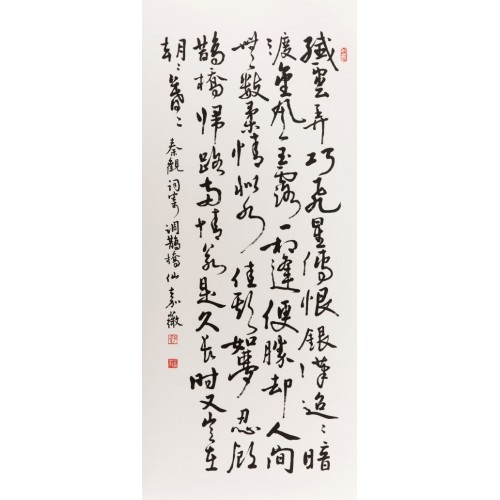 纖雲弄巧飛星傳恨銀漢迢〻暗
渡金風玉露一相逢便勝却人间
無數柔情似水佳期如夢忍顧
鵲橋歸路兩情若是久長时又豈在
朝〻暮〻
秦觀詞寄調鵲橋仙 嘉薇